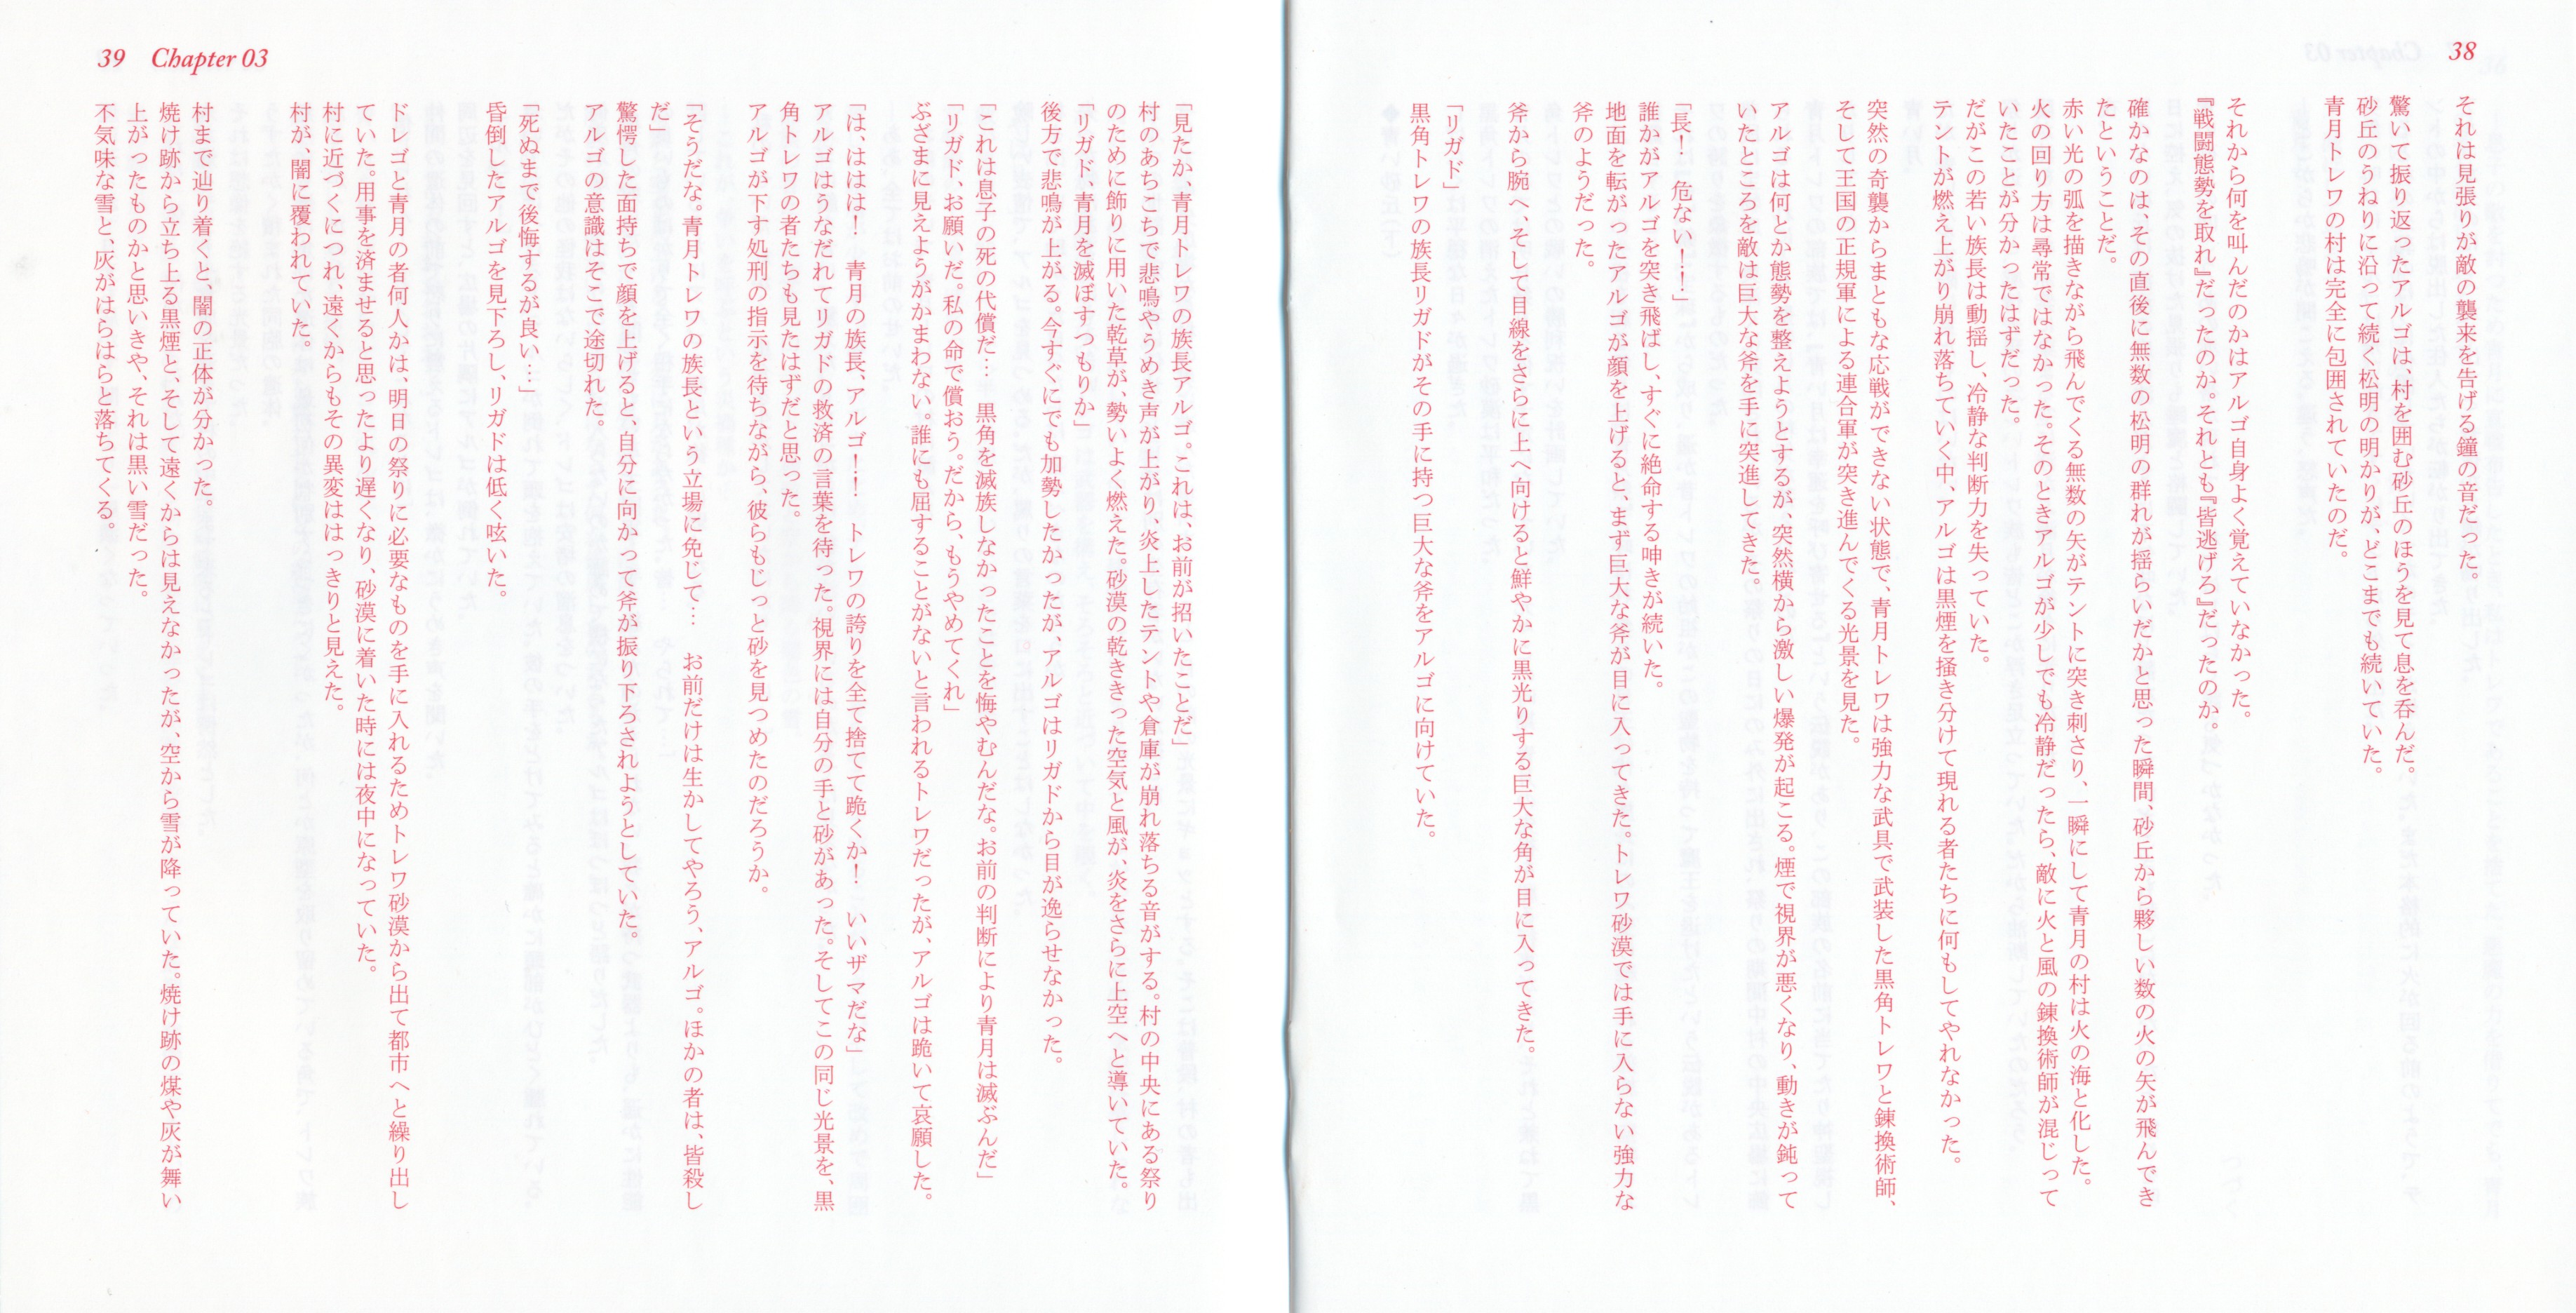 38
それは見張りが敵の襲来を告げる鐘の音だった。
驚いて振り返ったアルゴは、村を囲む砂丘のほうを見て息を呑んだ。
砂丘のうねりに沿って続く松明の明かりが、どこまでも続いていた。
青月トレワの村は完全に包囲されていたのだ。
それから何を叫んだのかはアルゴ自身よく覚えていなかった。
『戦闘態勢を取れ』だったのか。それとも『皆逃げろ』だったのか。
確かなのは、その直後に無数の松明の群れが揺らいだかと思った瞬間、砂丘から夥しい数の火の矢が飛んでき
たということだ。
赤い光の弧を描きながら飛んでくる無数の矢がテントに突き刺さり、一瞬にして青月の村は火の海と化した。
火の回り方は尋常ではなかった。そのときアルゴが少しでも冷静だったら、敵に火と風の錬換術師が混じって
いたことが分かったはずだった。
だがこの若い族長は動揺し、冷静な判断力を失っていた。
テントが燃え上がり崩れ落ちていく中、アルゴは黒煙を掻き分けて現れる者たちに何もしてやれなかった。
突然の奇襲からまともな応戦ができない状態で、青月トレワは強力な武具で武装した黒角トレワと錬換術師、
そして王国の正規軍による連合軍が突き進んでくる光景を見た。
アルゴは何とか態勢を整えようとするが、突然横から激しい爆発が起こる。煙で視界が悪くなり、動きが鈍って
いたところを敵は巨大な斧を手に突進してきた。
「長！　危ない！！」
誰かがアルゴを突き飛ばし、すぐに絶命する呻きが続いた。
地面を転がったアルゴが顔を上げると、まず巨大な斧が目に入ってきた。トレワ砂漠では手に入らない強力な
斧のようだった。
斧から腕へ、そして目線をさらに上へ向けると鮮やかに黒光りする巨大な角が目に入ってきた。
「リガド」
黒角トレワの族長リガドがその手に持つ巨大な斧をアルゴに向けていた。
39 Chapter 03
「見たか、青月トレワの族長アルゴ。これは、お前が招いたことだ」
村のあちこちで悲鳴やうめき声が上がり、炎上したテントや倉庫が崩れ落ちる音がする。村の中央にある祭り
のために飾りに用いた乾草が、勢いよく燃えた。砂漠の乾ききった空気と風が、炎をさらに上空へと導いていた。
「リガド、青月を滅ぼすつもりか」
後方で悲鳴が上がる。今すぐにでも加勢したかったが、アルゴはリガドから目が逸らせなかった。
「これは息子の死の代償だ…　黒角を滅族しなかったことを悔やむんだな。お前の判断により青月は滅ぶんだ」
「リガド、お願いだ。私の命で償おう。だから、もうやめてくれ」
ぶざまに見えようがかまわない。誰にも屈することがないと言われるトレワだったが、アルゴは跪いて哀願した。
「は、ははは！　青月の族長、アルゴ！！　トレワの誇りを全て捨てて跪くか！　いいザマだな」
アルゴはうなだれてリガドの救済の言葉を待った。視界には自分の手と砂があった。そしてこの同じ光景を、黒
角トレワの者たちも見たはずだと思った。
アルゴが下す処刑の指示を待ちながら、彼らもじっと砂を見つめたのだろうか。
「そうだな。青月トレワの族長という立場に免じて…　お前だけは生かしてやろう、アルゴ。ほかの者は、皆殺し
だ」
驚愕した面持ちで顔を上げると、自分に向かって斧が振り下ろされようとしていた。
アルゴの意識はそこで途切れた。
「死ぬまで後悔するが良い…」
昏倒したアルゴを見下ろし、リガドは低く呟いた。
ドレゴと青月の者何人かは、明日の祭りに必要なものを手に入れるためトレワ砂漠から出て都市へと繰り出し
ていた。用事を済ませると思ったより遅くなり、砂漠に着いた時には夜中になっていた。
村に近づくにつれ、遠くからもその異変ははっきりと見えた。
村が、闇に覆われていた。
村まで辿り着くと、闇の正体が分かった。
焼け跡から立ち上る黒煙と、そして遠くからは見えなかったが、空から雪が降っていた。焼け跡の煤や灰が舞い
上がったものかと思いきや、それは黒い雪だった。
不気味な雪と、灰がはらはらと落ちてくる。